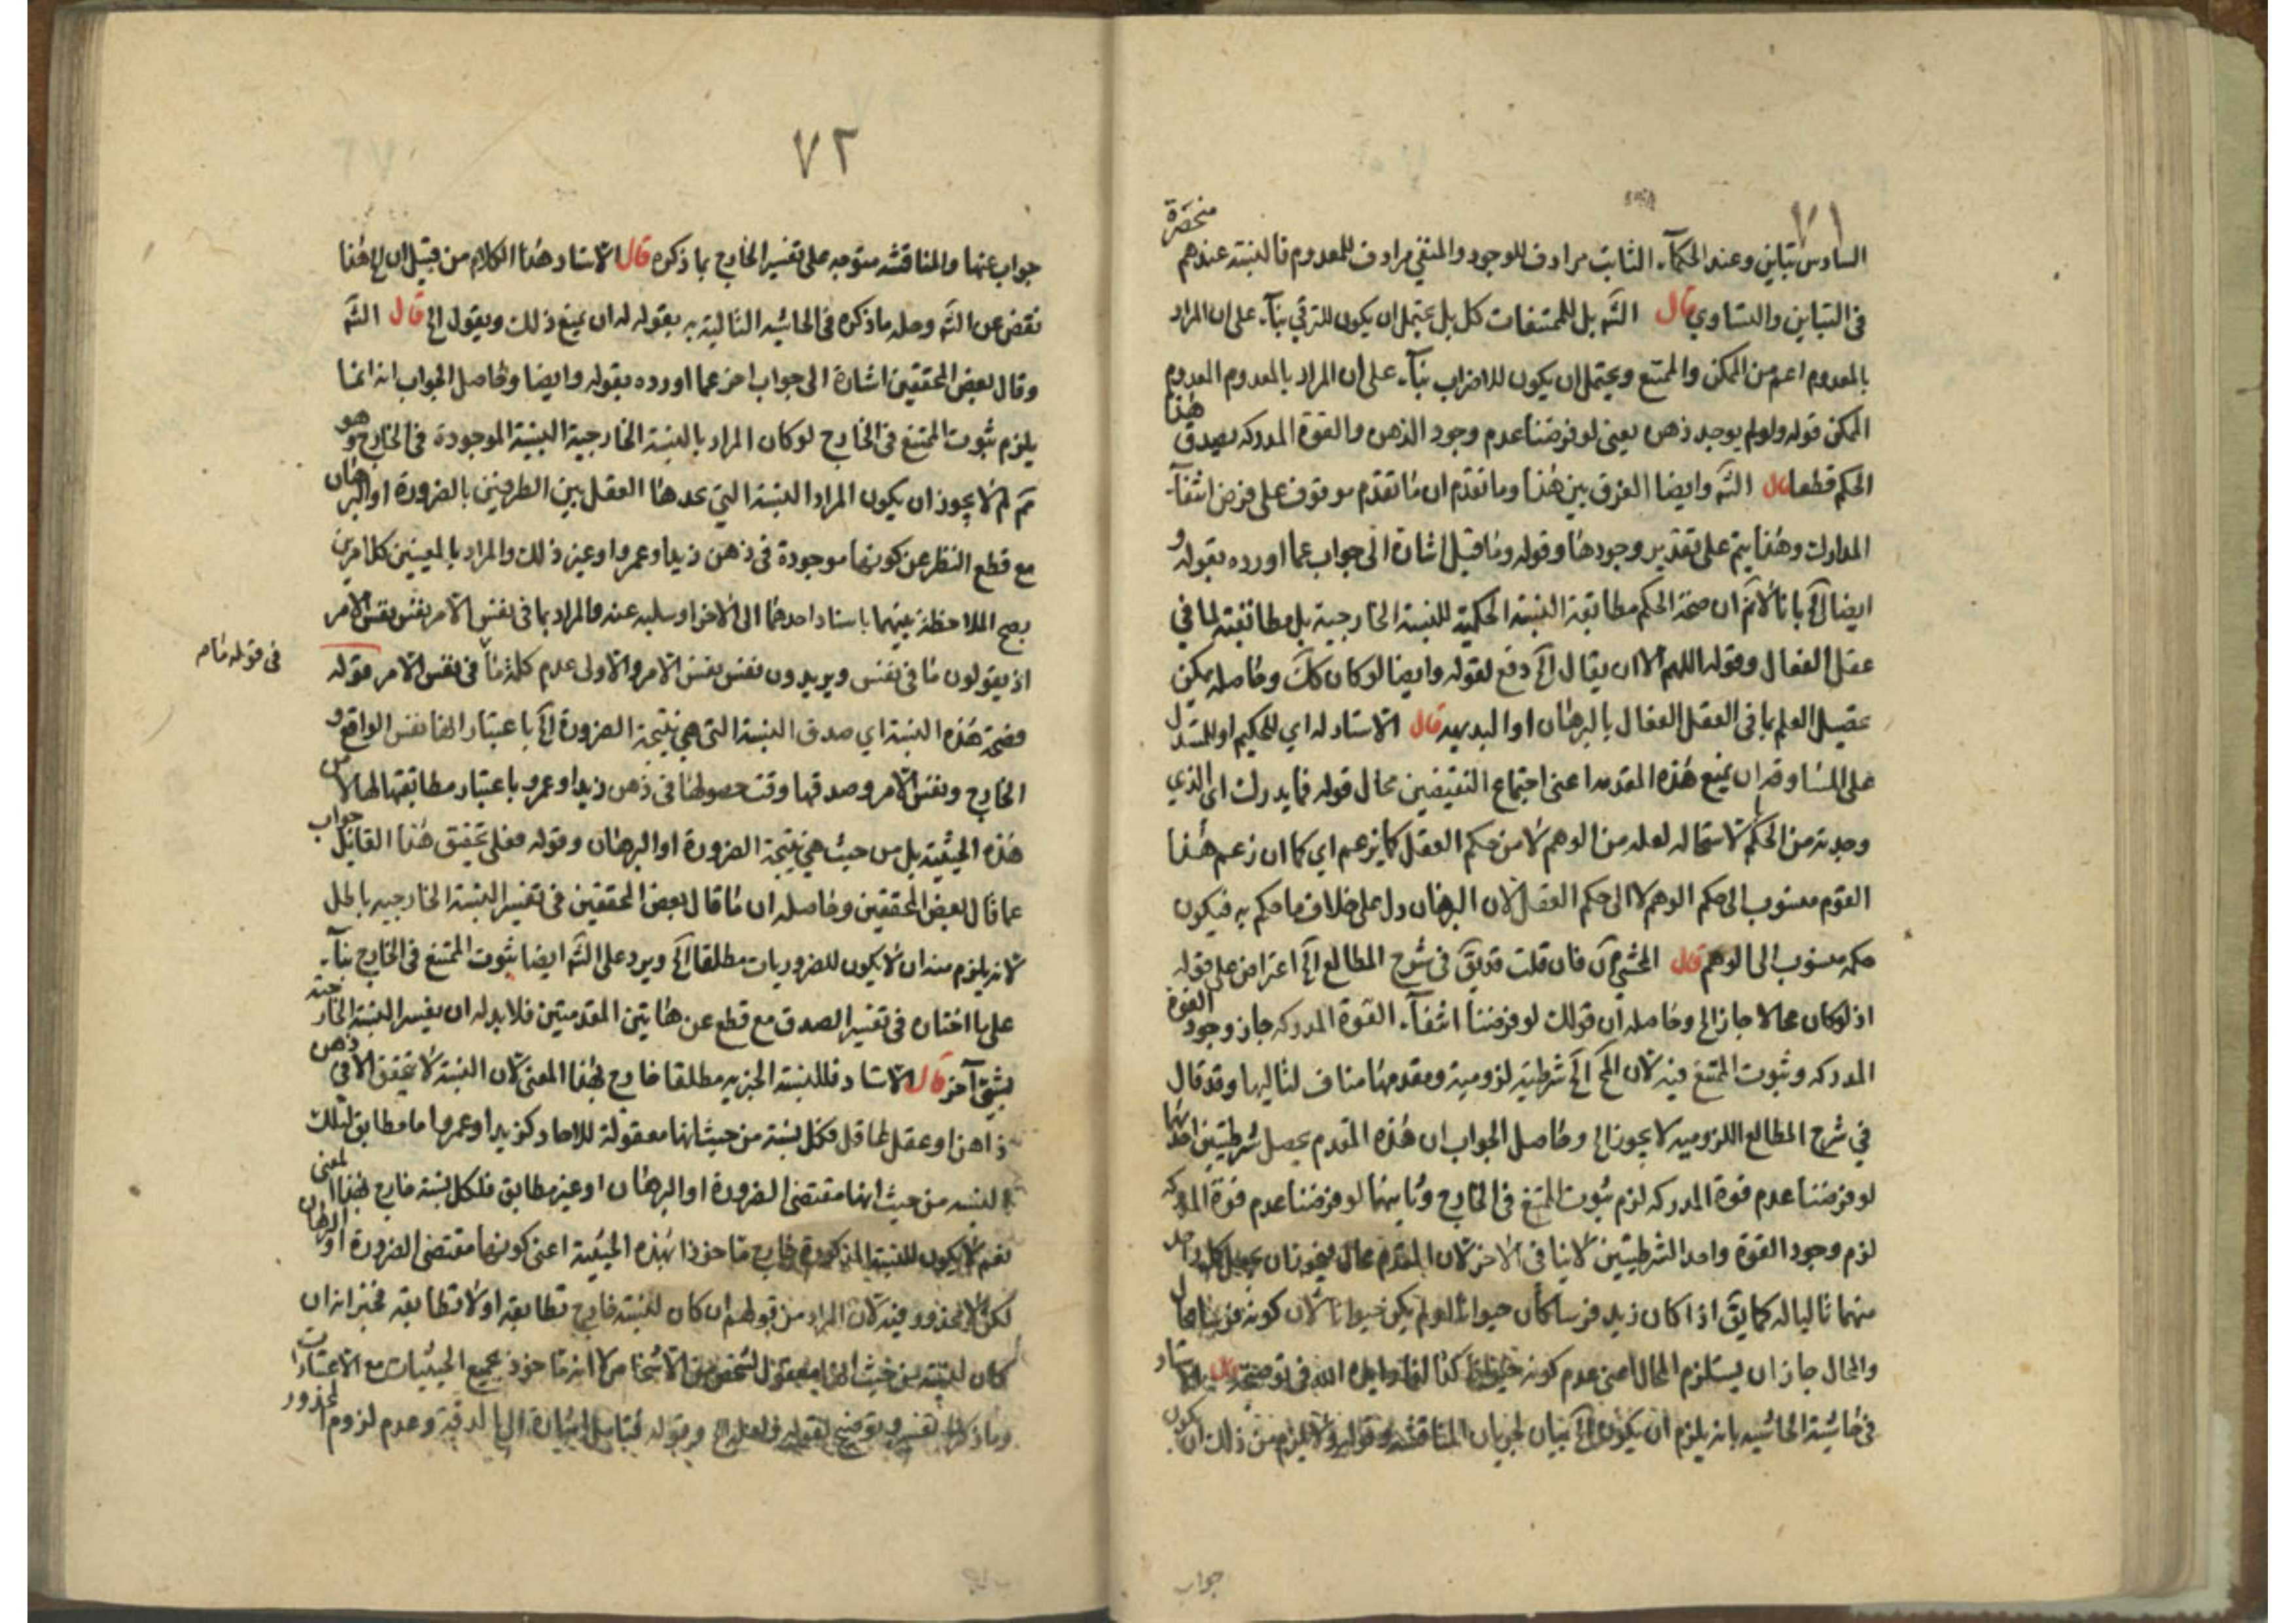 ٧١
السادس تباين وعند الحكمآء الثابت مرادف للموجود والمنفي مرادف للمعدوم فالنسبة عندهم منحصرة
في التباين والتساوي قال الشه بل للممتنعات كل بل يحتمل ان يكون للترقي بنآء على ان المراد
بالمعدوم اعم من الممكن والممتنع ويحتمل ان يكون للاضراب بنآء على ان المراد بالمعدوم المعدوم
الممكن قوله ولو لم يوجد ذهن يعني لو فرضنا عدم وجود الذهن والقوة المدركه يصدق هذا
الحكم قطعا قال الشه وايضا الفرق بين هذا وما تقدم ان ما تقدم موقوف على فرض انتفآء
المدارك وهذا يتم على تقدير وجودها وقوله وما قيل اشارة الى جواب عما اورده بقوله و
ايضا الخ بانا لانم ان صحة الحكم مطابقة النسبة الحكمية للنسبة الخارجية بل مطابقته لما في
عقل الفعال وقوله اللهم الا ان يقال الخ دفع لقوله وايضا لو كان كك وحاصله يمكن
تحصيل العلم بما في العقل الفعال بالبرهان او البديهه قال الاستاد له اي للحكيم او للمستدل
على المساوقه ان يمنع هذه المقدمه اعني اجتماع النقيضين محال قوله فما يدرك اي الذي
وجدته من الحكم بالاستحاله لعله من الوهم لا من حكم العقل كما يزعم اي كما ان زعم هذا
القوم منسوب الى حكم الوهم لا الى حكم العقل لان البرهان دل على خلاف ما حكم به فيكون
حكمه منسوب الى الوهم قال المحشي فان قلت قد يق في شرح المطالع الخ اعتراض على قوله
اذ لو كان محالا جاز الخ وحاصله ان قولك لو فرضنا انتفآء القوة المدركه جاز وجود القوة
المدركه وثبوت الممتنع فيه لان المح الخ شرطية لزومية ومقدمها مناف لتاليها وقد قال
في شرح المطالع اللزوميه لا يجوز الخ وحاصل الجواب ان هذه المقدم يحصل شرطيتين احدهما
لو فرضنا عدم قوة المدركه لزم ثبوت الممتنع في الخارج وثانيهما لو فرضنا عدم قوة المدركه
لزم وجود القوة واحد الشرطيتين لا ينافي الاخر لان المقدم محال فيجوز ان يجعل كل واحد
منهما تاليا له كما يق اذا كان زيد فرسا كان حيوانا لو لم يكن حيوانا لان كونه فرسا محال
والمحال جاز ان يستلزم المحال اعني عدم كونه حيوانا كذا افاد ايده الله في توضيحه قال الاستاد
في حاشية الحاشيه بانه يلزم ان يكون الخ بيان لجريان المناقشه وقوله ولا يلزم من ذلك ان يكون
جواب
٧٢
جواب عنها والمناقشه متوجه على تفسير الخارج بما ذكره قال الاستاد هذا الكلام من قبيل ان الخ هذا
نقض عن الشه وحله ما ذكره في الحاشيه التالية به بقوله له ان يمنع ذلك ويقول الخ قال الشه
وقال بعض المحققين اشارة الى جواب اخر عما اورده بقوله وايضا وحاصل الجواب انه انما
يلزم ثبوت الممتنع في الخارج لو كان المراد بالنسبة الخارجية النسبة الموجودة في الخارج وهو
مم لم لا يجوز ان يكون المراد النسبة التي يجدها العقل بين الطرفين بالضرورة او البرهان
مع قطع النظر عن كونها موجودة في ذهن زيد او عمرو او غير ذلك والمراد بالمعينين كل امرين
يصح الملاحظة بينهما باسناد احدهما الى الاخر او سلبه عنه والمراد بما في نفس الامر نفس نفس الامر
اذ يقولون ما في نفس ويريدون نفس نفس الامر والاولى عدم كلمة ما في نفس الامر قوله
في قوله ما م
فصحة هذه النسبة اي صدق النسبة التي هي نتيجة الضرورة الخ باعتبار انها نفس الواقع و
الخارج ونفس الامر وصدقها وقت حصولها في ذهن زيد او عمرو باعتبار مطابقتها لها لا من
هذه الحيثية بل من حيث هي نتيجة الضرورة او البرهان وقوله فعلى تحقيق هذا القائل جواب
عما قال بعض المحققين وحاصله ان ما قال بعض المحققين في تفسير النسبة الخارجيه باطل
لانه يلزم منه ان لا يكون للضروريات مطلقا الخ ويرد على الشه ايضا ثبوت الممتنع في الخارج بنآء
على ما اختاره في تفسير الصدق مع قطع عن هاتين المقدمتين فلا بد له ان يفسر النسبة الخارجية
بشيء آخر قال الاستاد فللنسبة الخبريه مطلقا خارج بهذا المعنى لان النسبة لا يتحقق الا في ذهن
ذاهن او عقل عاقل فكل نسبة من حيث انها معقولة للاحاد كزيد او عمرو اما مطابق لتلك
النسبه من حيث انها مقتضى الضرورة او البرهان او غير مطابق فلكل نسبة خارج بهذا المعنى
نعم لا يكون للنسبة المذكورة خارج ماخوذا بهذه الحيثية اعني كونها مقتضى الضرورة او البرهان
لكن لا محذور فيه لان المراد من قولهم ان كان لنسبته خارج تطابقه او لا تطابقه فخبر انه ان
كان لنسبته من حيث انها معقول لشخص من الاشخاص لا انه ماخوذ بجميع الحيثيات مع الاعتبارات
وما ذكرنا تفسير وتوضيح لقوله ولعل الخ وقوله فتامل اشارة الى الدقة وعدم لزوم المحذور